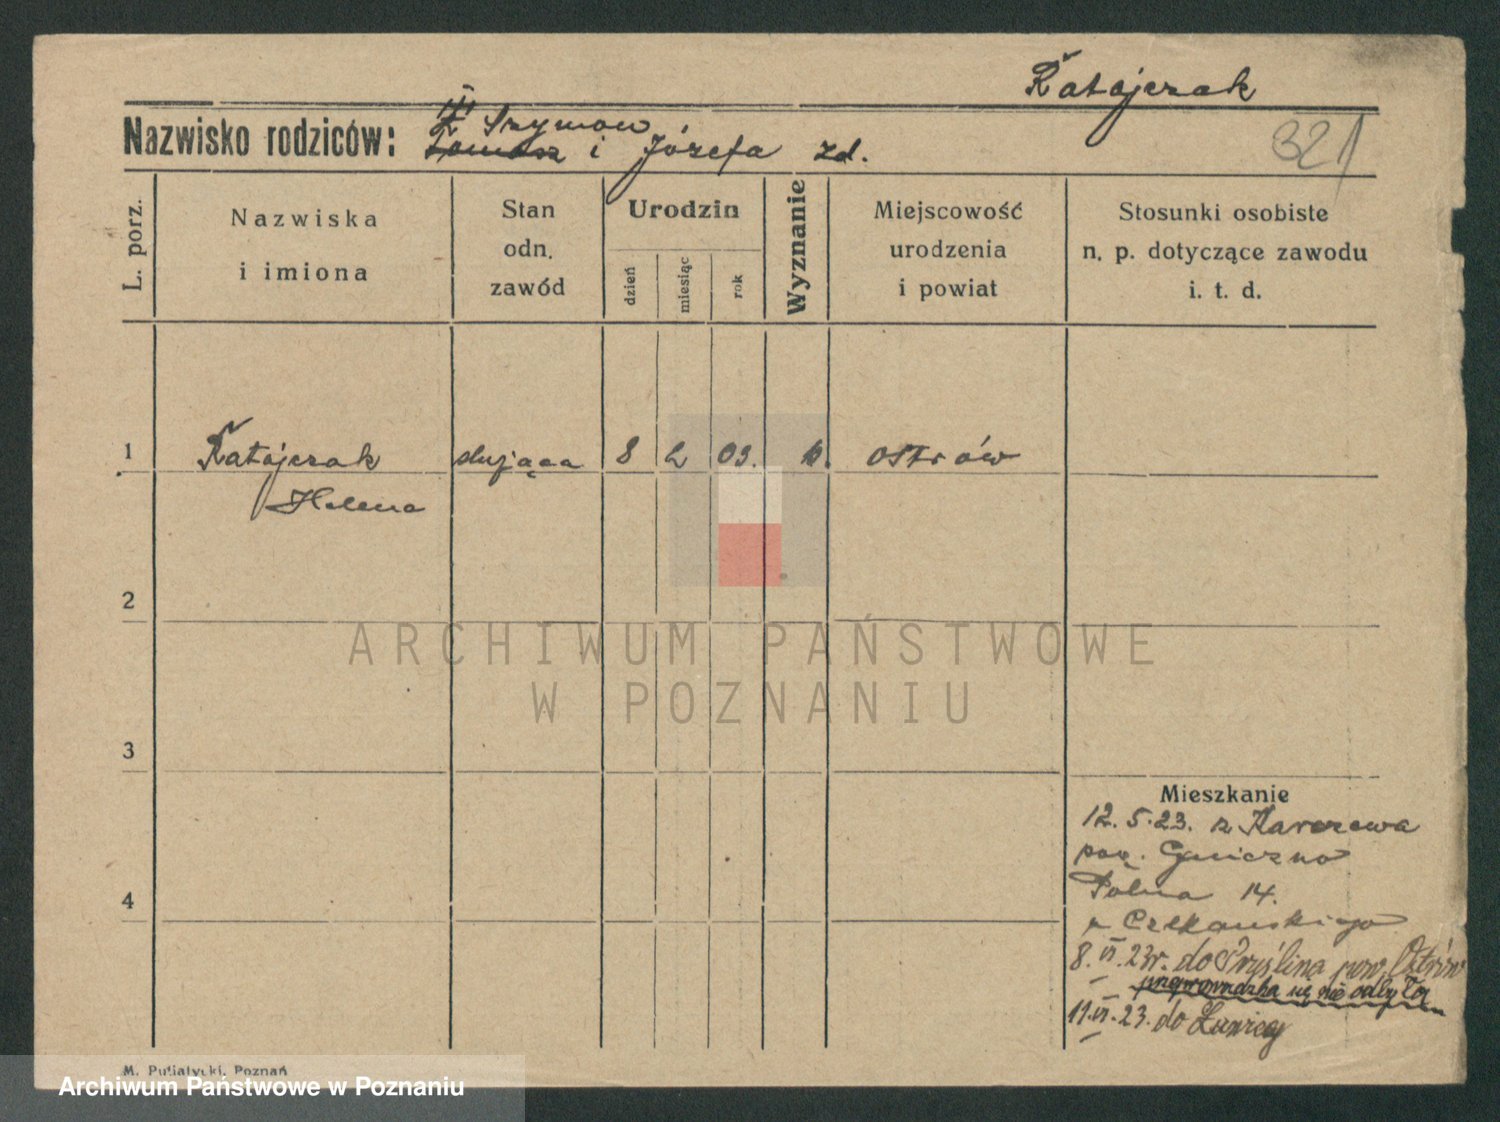 Ratajczak
321
III
Szymon
Nazwisko rodziców: Tomasz i Józefa zd.
L. porz.
Nazwiska
i imiona
Stan
odn.
zawód
Urodzin
dzień
miesiąc
rok
Wyznanie
Miejscowość
urodzenia
i powiat
Stosunki osobiste
n. p. dotyczące zawodu
i. t. d.
1 Ratajczak służąca 8 2 03. k. Ostrów
Helena
2
3
4
Mieszkanie
12.5.23. z Karczewa
pow. Gniezno
Polna 14.
u Czekańskiego
8.VI.23r. do pow. Ostrów
przeprowadzka się nie odbyła
11.VI.23. do
M. Putiatycki, Poznań
ARCHIWUM PAŃSTWOWE
W POZNANIU
Archiwum Państwowe w Poznaniu